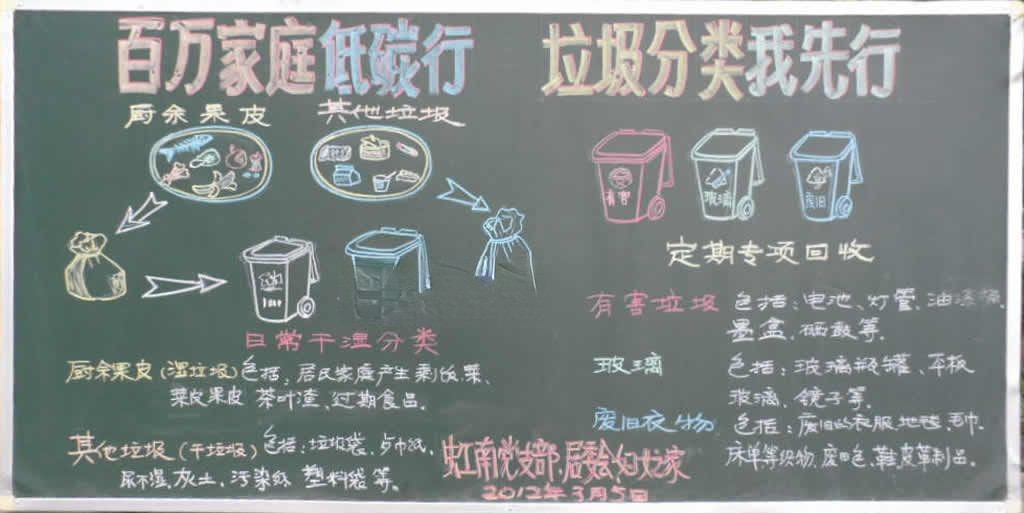 百万家庭低碳行
垃圾分类我先行
厨余果皮
其他垃圾
有害
玻璃
废旧
定期专项回收
日常干湿分类
厨余果皮(湿垃圾)包括:居民家庭产生剩饭菜、
菜皮果皮 茶叶渣、过期食品。
其他垃圾(干垃圾)包括:垃圾袋、纸、
尿不湿、灰土、污染纸 塑料袋等。
有害垃圾 包括:电池、灯管、油漆桶、
墨盒、硒鼓等。
玻璃 包括:玻璃瓶罐、平板
玻璃、镜子等。
废旧衣物 包括:废旧的衣服、地毯、毛巾、
床单等织物、废旧包、鞋、皮革制品。
虹南党支部、居委会、妇女家
2012年3月5日